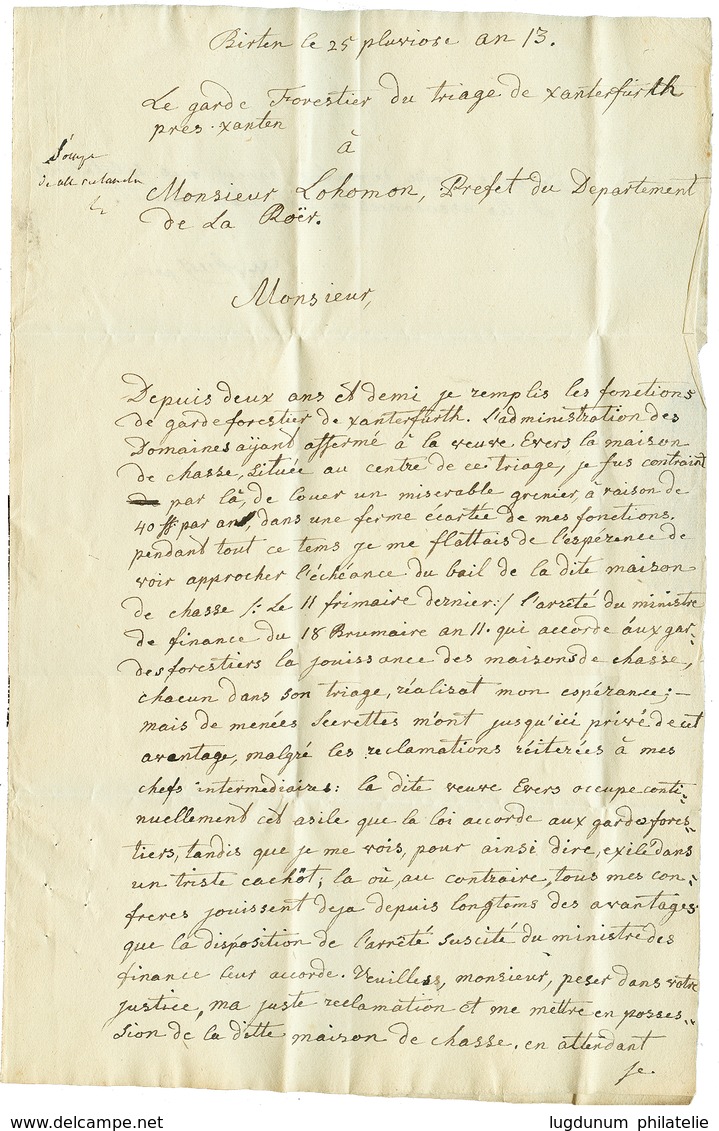 Birten le 25 pluviose an 13.
Le garde Forestier du triage de xanterfürth
pres xanten
à
Monsieur Lohomon, Prefet du Departement
de La Roër.
Monsieur,
Depuis deux ans et demi je remplis les fonctions
de garde forestier de xanterfürth. L'administration des
Domaines aÿant affermé à la veuve Evers la maison
de chasse, située au centre de ce triage, je fus contraint
par là, de louer un miserable grenier, à raison de
40 ff. par an, dans une ferme écartée de mes fonctions.
pendant tout ce tems je me flattais de l'espérence de
voir approcher l'échéance du bail de la dite maison
de chasse /: Le 11 frimaire dernier :/ l'arrété du ministre
de finance du 18 Brumaire an 11. qui accorde áux gar-
des forestiers la jouissance des maisons de chasse,
chacun dans son triage, réalisat mon espérance; —
mais de menées secrettes m'ont jusqu'ici privé de cet
avantage, malgré les reclamations réiterées à mes
chefs intermediaires: la dite veuve Evers occupe conti-
nuellement cet asile que la loi accorde aux gardes fores-
tiers, tandis que je me vois, pour ainsi dire, exilé dans
un triste cachôt; la où, au contraire, tous mes con-
freres jouissent deja depuis longtems des avantages
que la disposition de l'arrêté suscité du ministre des
finance leur accorde. Veuilless, monsieur, peser dans votre
justice, ma juste reclamation et me mettre en posses-
sion de la ditte maison de chasse. en attendant
je.
www.delcampe.net
lugdunum philatelie